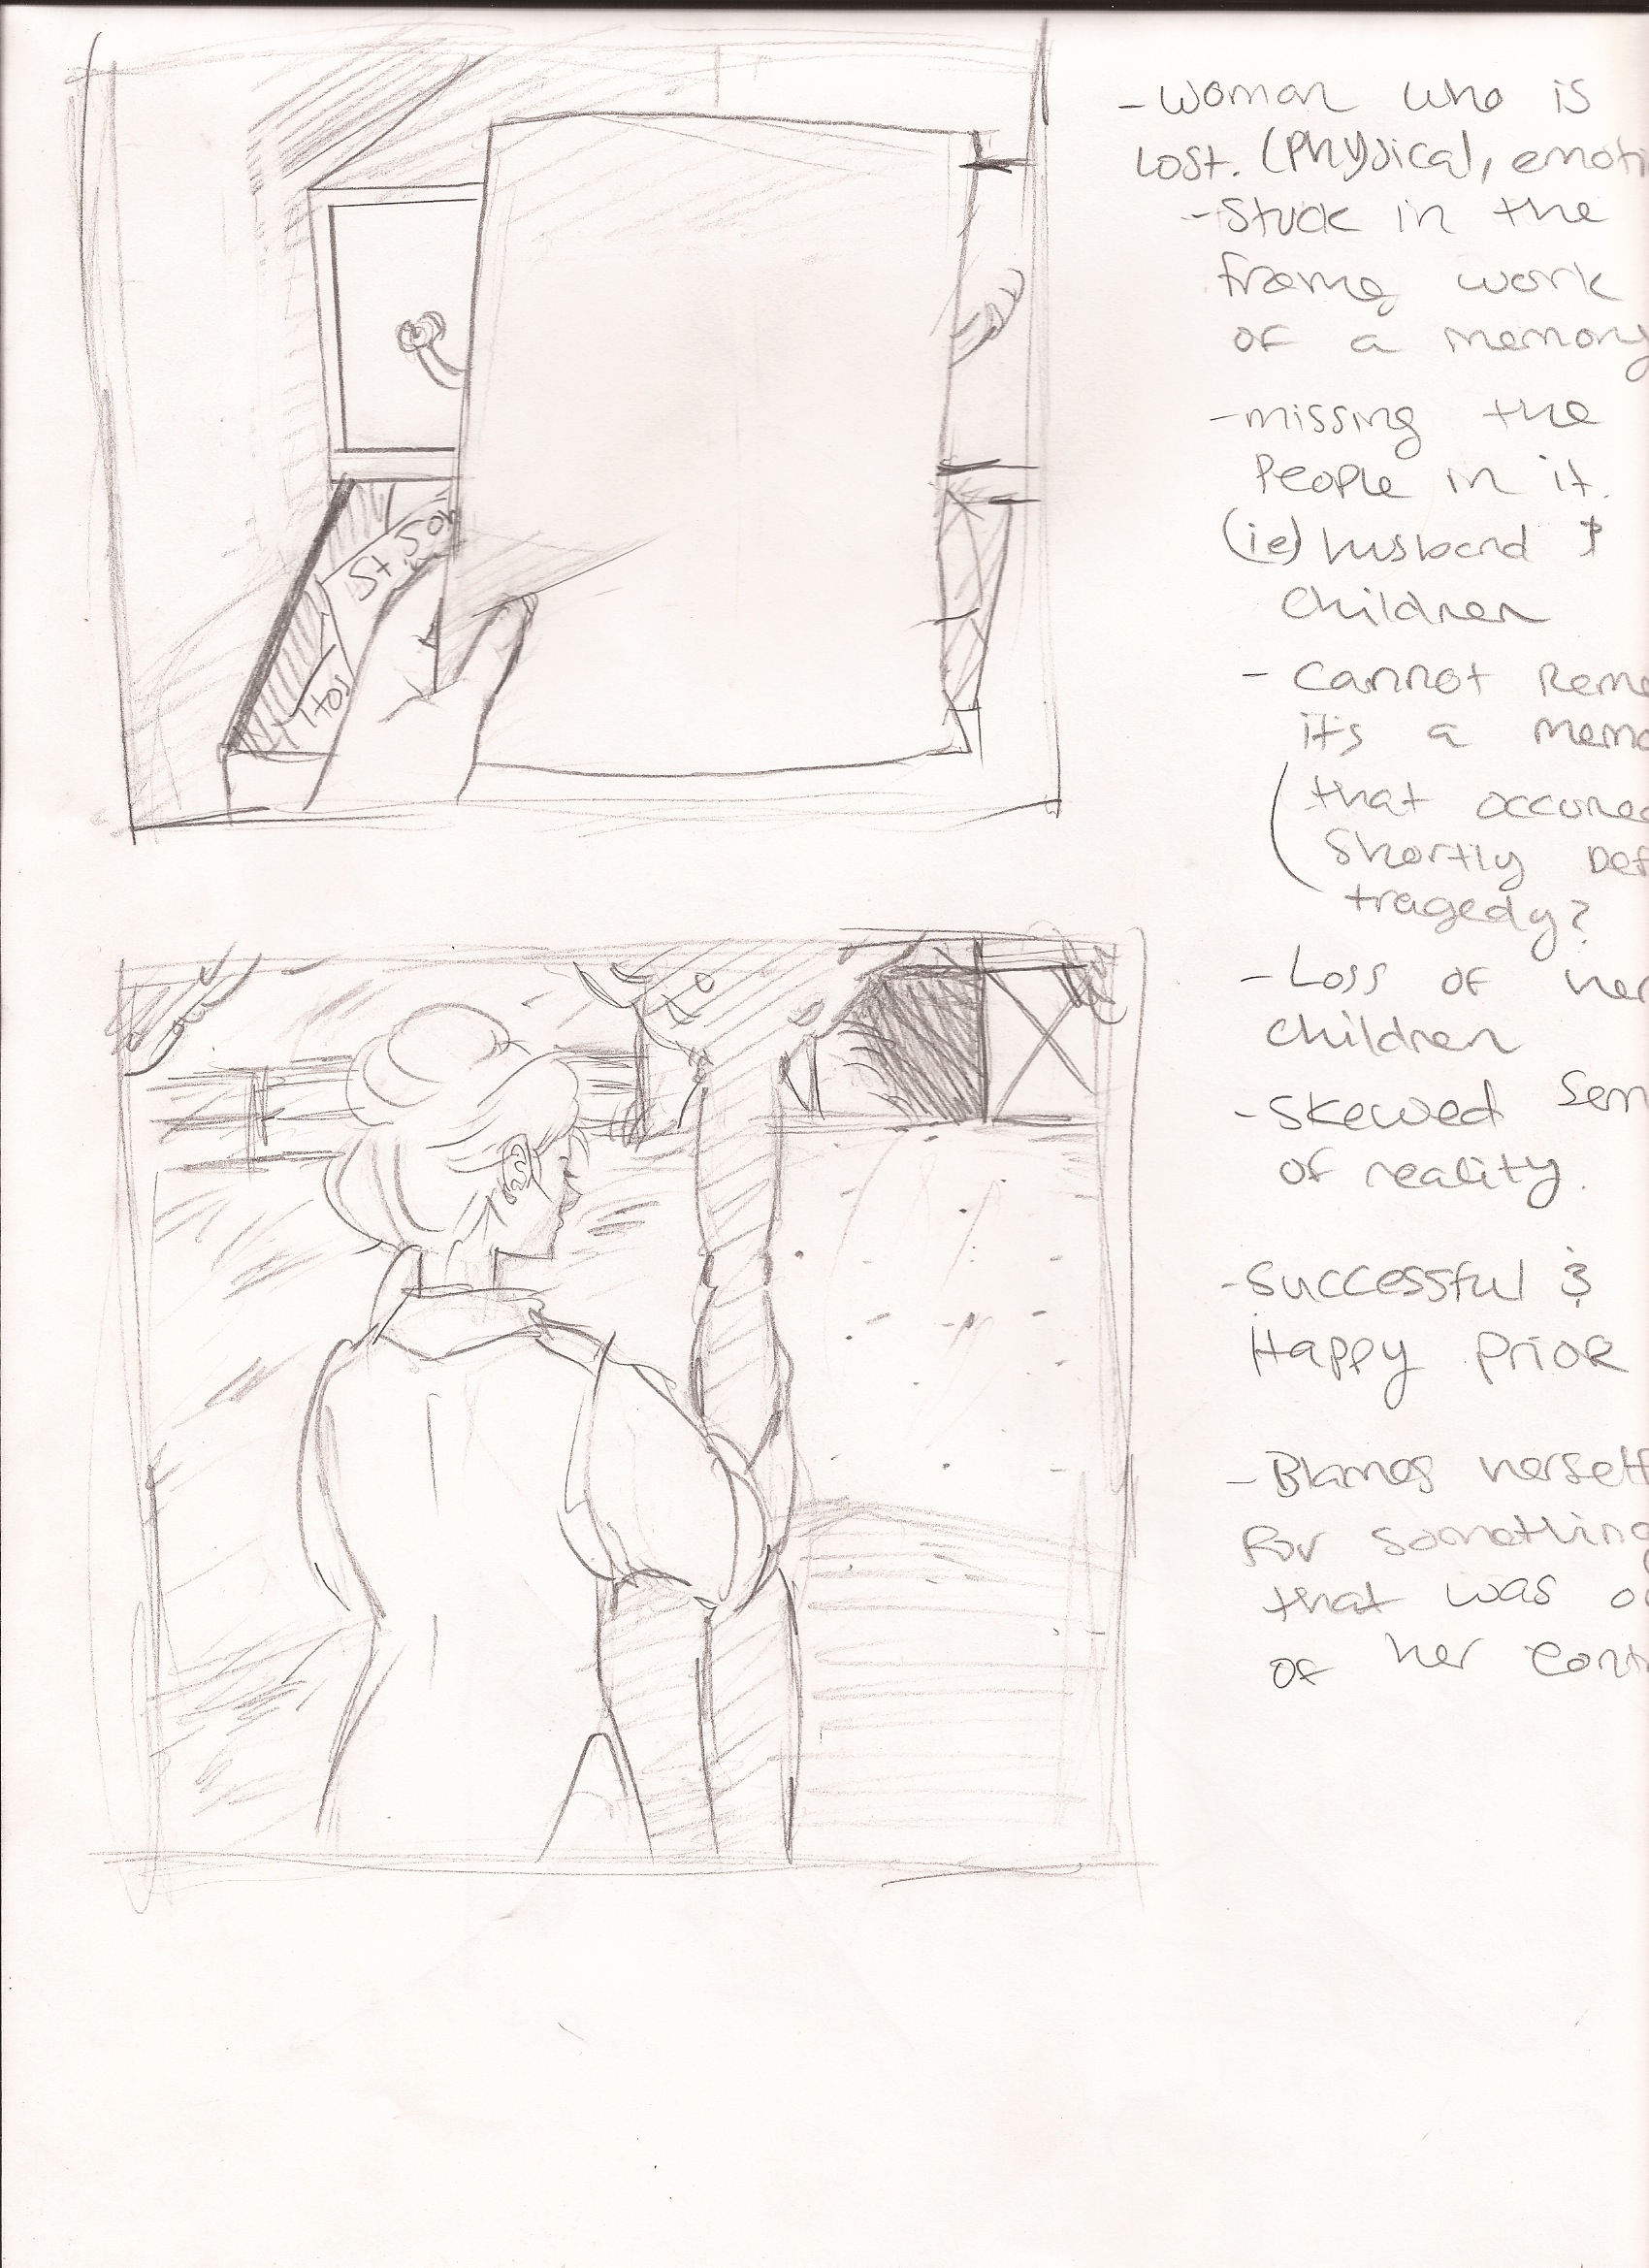 St. Som
Hos
- Woman who is
lost. (Physical, emoti
- Stuck in the
frame work
of a memory
- missing the
People in it.
(ie) husband &
Children
- Cannot Reme
its a memo
that occured
Shortly bef
tragedy?
- Loss of her
children
- Skewed Sen
of reality.
- Successful &
Happy Prior
- Blames herself
for something
that was ou
of her cont